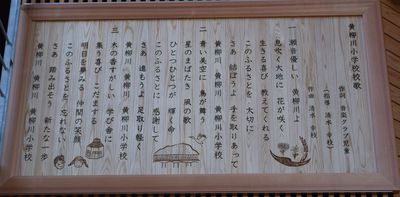 黄柳川小学校校歌
作詞 音楽クラブ児童
(指導 清水 幸枝)
作曲 清水 幸枝
一 瀬音優しい 黄柳川よ
息吹く大地に 花が咲く
生きる喜び 教えてくれる
このふるさとを 大切に
さあ 結ぼうよ 手を取りあって
黄柳川 黄柳川 黄柳川小学校
二 青い美空に 鳥が舞う
星のまばたき 風の歌
ひとつひとつが 輝く命
このふるさとに 感謝して
さあ 進もうよ 足取り軽く
黄柳川 黄柳川 黄柳川小学校
三 木の香すがしい 学び舎に
集う喜び こだまする
明日を夢みる 仲間の笑顔
このふるさとを 忘れない
さあ 踏み出そう 新たな一歩
黄柳川 黄柳川 黄柳川小学校